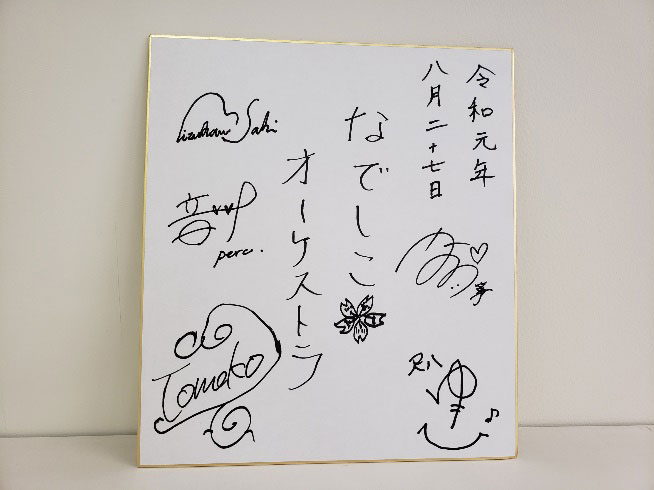 令和元年
八月二十七日
なでしこ
オーケストラ
Saki
perc.
Tomoko